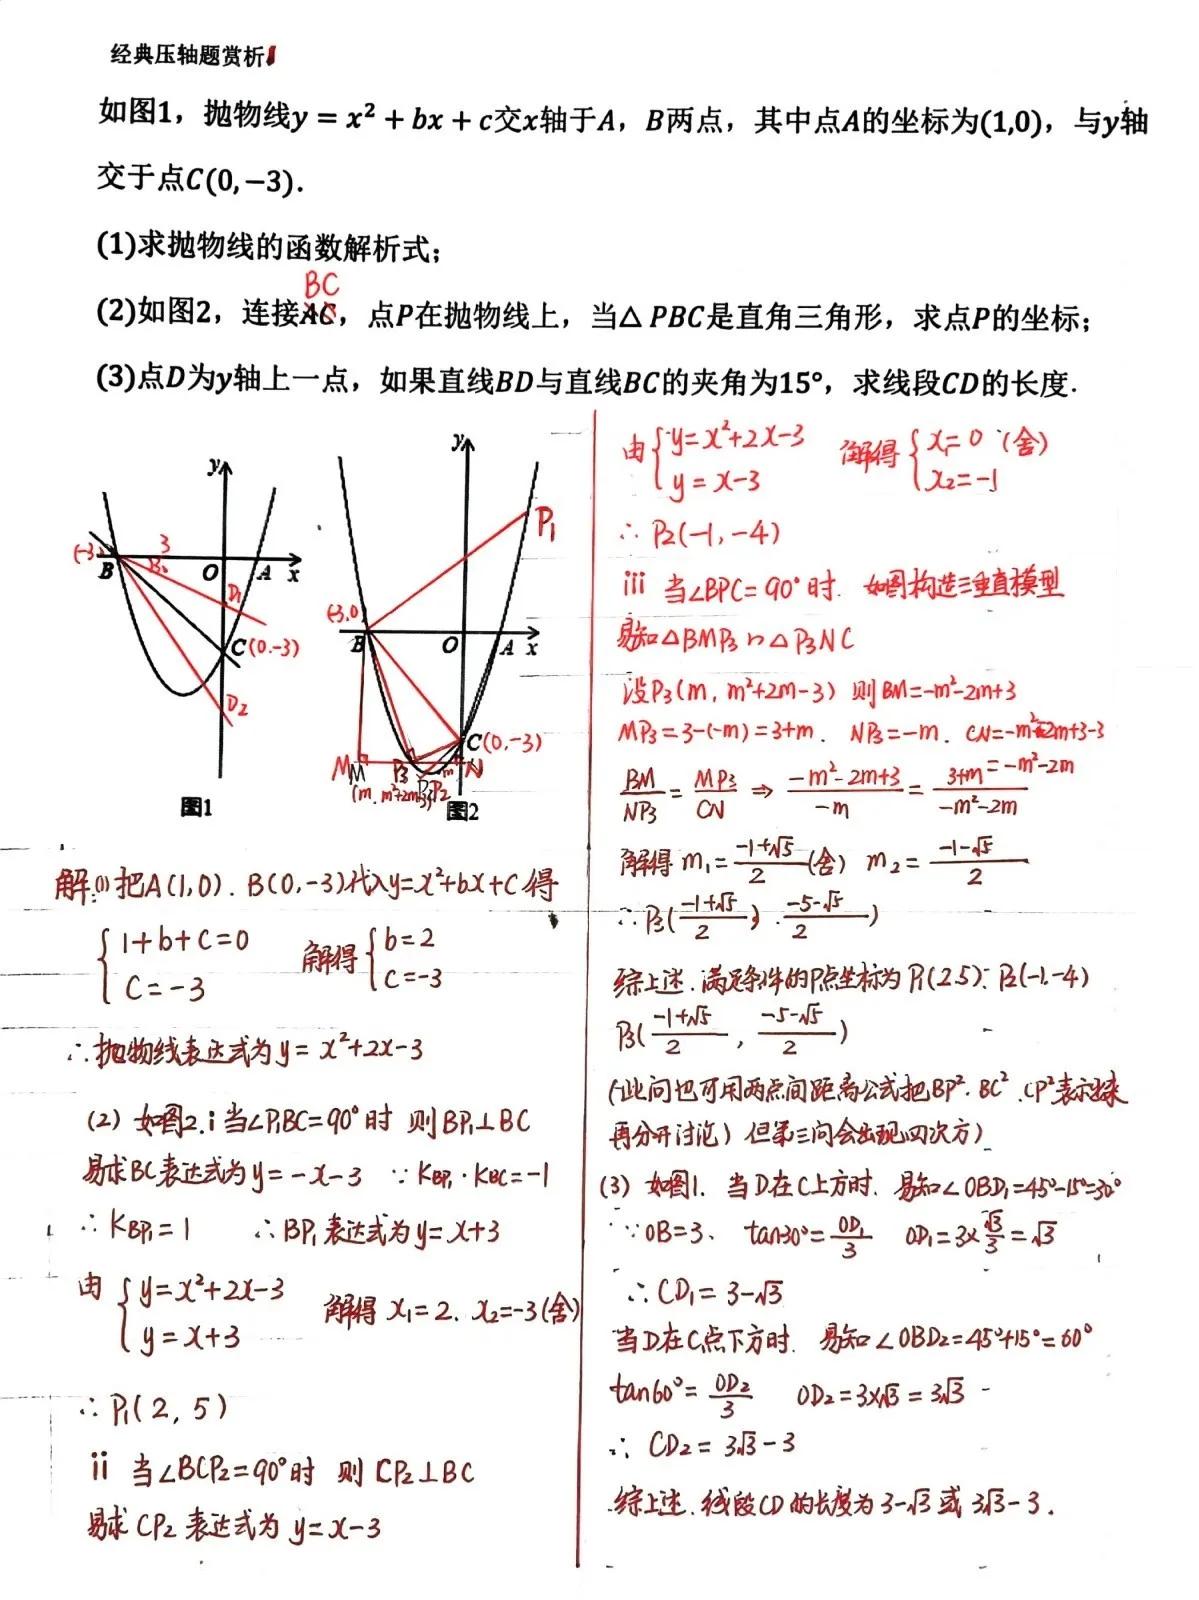 经典压轴题赏析1
如图1，抛物线y = x² + bx + c交x轴于A，B两点，其中点A的坐标为(1,0)，与y轴
交于点C(0,−3).
(1)求抛物线的函数解析式；
BC
(2)如图2，连接AC，点P在抛物线上，当△ PBC是直角三角形，求点P的坐标；
(3)点D为y轴上一点，如果直线BD与直线BC的夹角为15°，求线段CD的长度.
y
(-3,
3
B
O
A
x
D₁
C(0.-3)
D₂
图1
y
P₁
(-3,0
B
O
A
x
C(0,-3)
M
M
P₃
m
N
(m, m²+2m-3)
P₂
图2
解:(1)把A(1,0). B(0,-3)代入y=x²+bx+C得
{1+b+c=0 C=-3 解得{b=2 c=-3
∴抛物线表达式为y= x²+2x-3
(2) 如图2. i 当∠P₁BC=90°时 则BP₁⊥BC
易求BC表达式为y=-x-3 ∵ KBP₁·KBC=-1
∴KBP₁=1 ∴BP₁表达式为y=x+3
由{y=x²+2x-3 y=x+3 解得 x₁=2. x₂=-3(舍)
∴P₁(2, 5)
ii 当∠BCP₂=90°时 则 CP₂⊥BC
易求 CP₂ 表达式为 y=x-3
由{y=x²+2x-3 y=x-3 解得{x₁=0 (舍) x₂=-1
∴ P₂(-1, -4)
iii 当∠BPC=90°时. 如图构造三垂直模型
易知△BMP₃∽△P₃NC
设P₃(m, m²+2m-3) 则BM=-m²-2m+3
MP₃=3-(-m)=3+m. NP₃=-m. CN=-m²-2m+3-3
=-m²-2m
BM/NP₃=MP₃/CN ⇒ (-m²-2m+3)/(-m)=(3+m)/(-m²-2m)
解得 m₁=(-1+√5)/2(舍) m₂=(-1-√5)/2
∴P₃((-1+√5)/2).(-5-√5)/2)
综上述.满足条件的P点坐标为 P₁(2.5); P₂(-1.-4)
P₃((-1+√5)/2, (-5-√5)/2)
(此问也可用两点间距离公式把BP². BC². CP²表示出来
再分开讨论) 但第三问会出现四次方)
(3) 如图1. 当D在C上方时. 易知∠OBD₁=45°-15°=30°
∵OB=3、 tan30°=OD₁/3 OD₁=3×√3/3=√3
∴CD₁=3-√3
当D在C点下方时. 易知∠OBD₂=45°+15°=60°
tan60°=OD₂/3 OD₂=3×√3=3√3
∴ CD₂=3√3-3
综上述.线段CD的长度为3-√3或3√3-3.